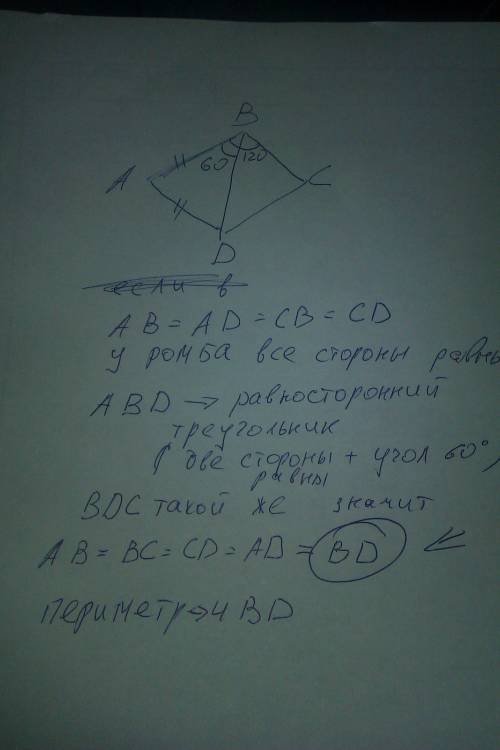 B
60 120
A
C
D
если в
AB = AD = CB = CD
у ромба все стороны равны
ABD → равносторонний
треугольник
( две стороны + угол 60°,
равны
BDC такой же значит
AB = BC = CD = AD = BD
Периметр → 4 BD